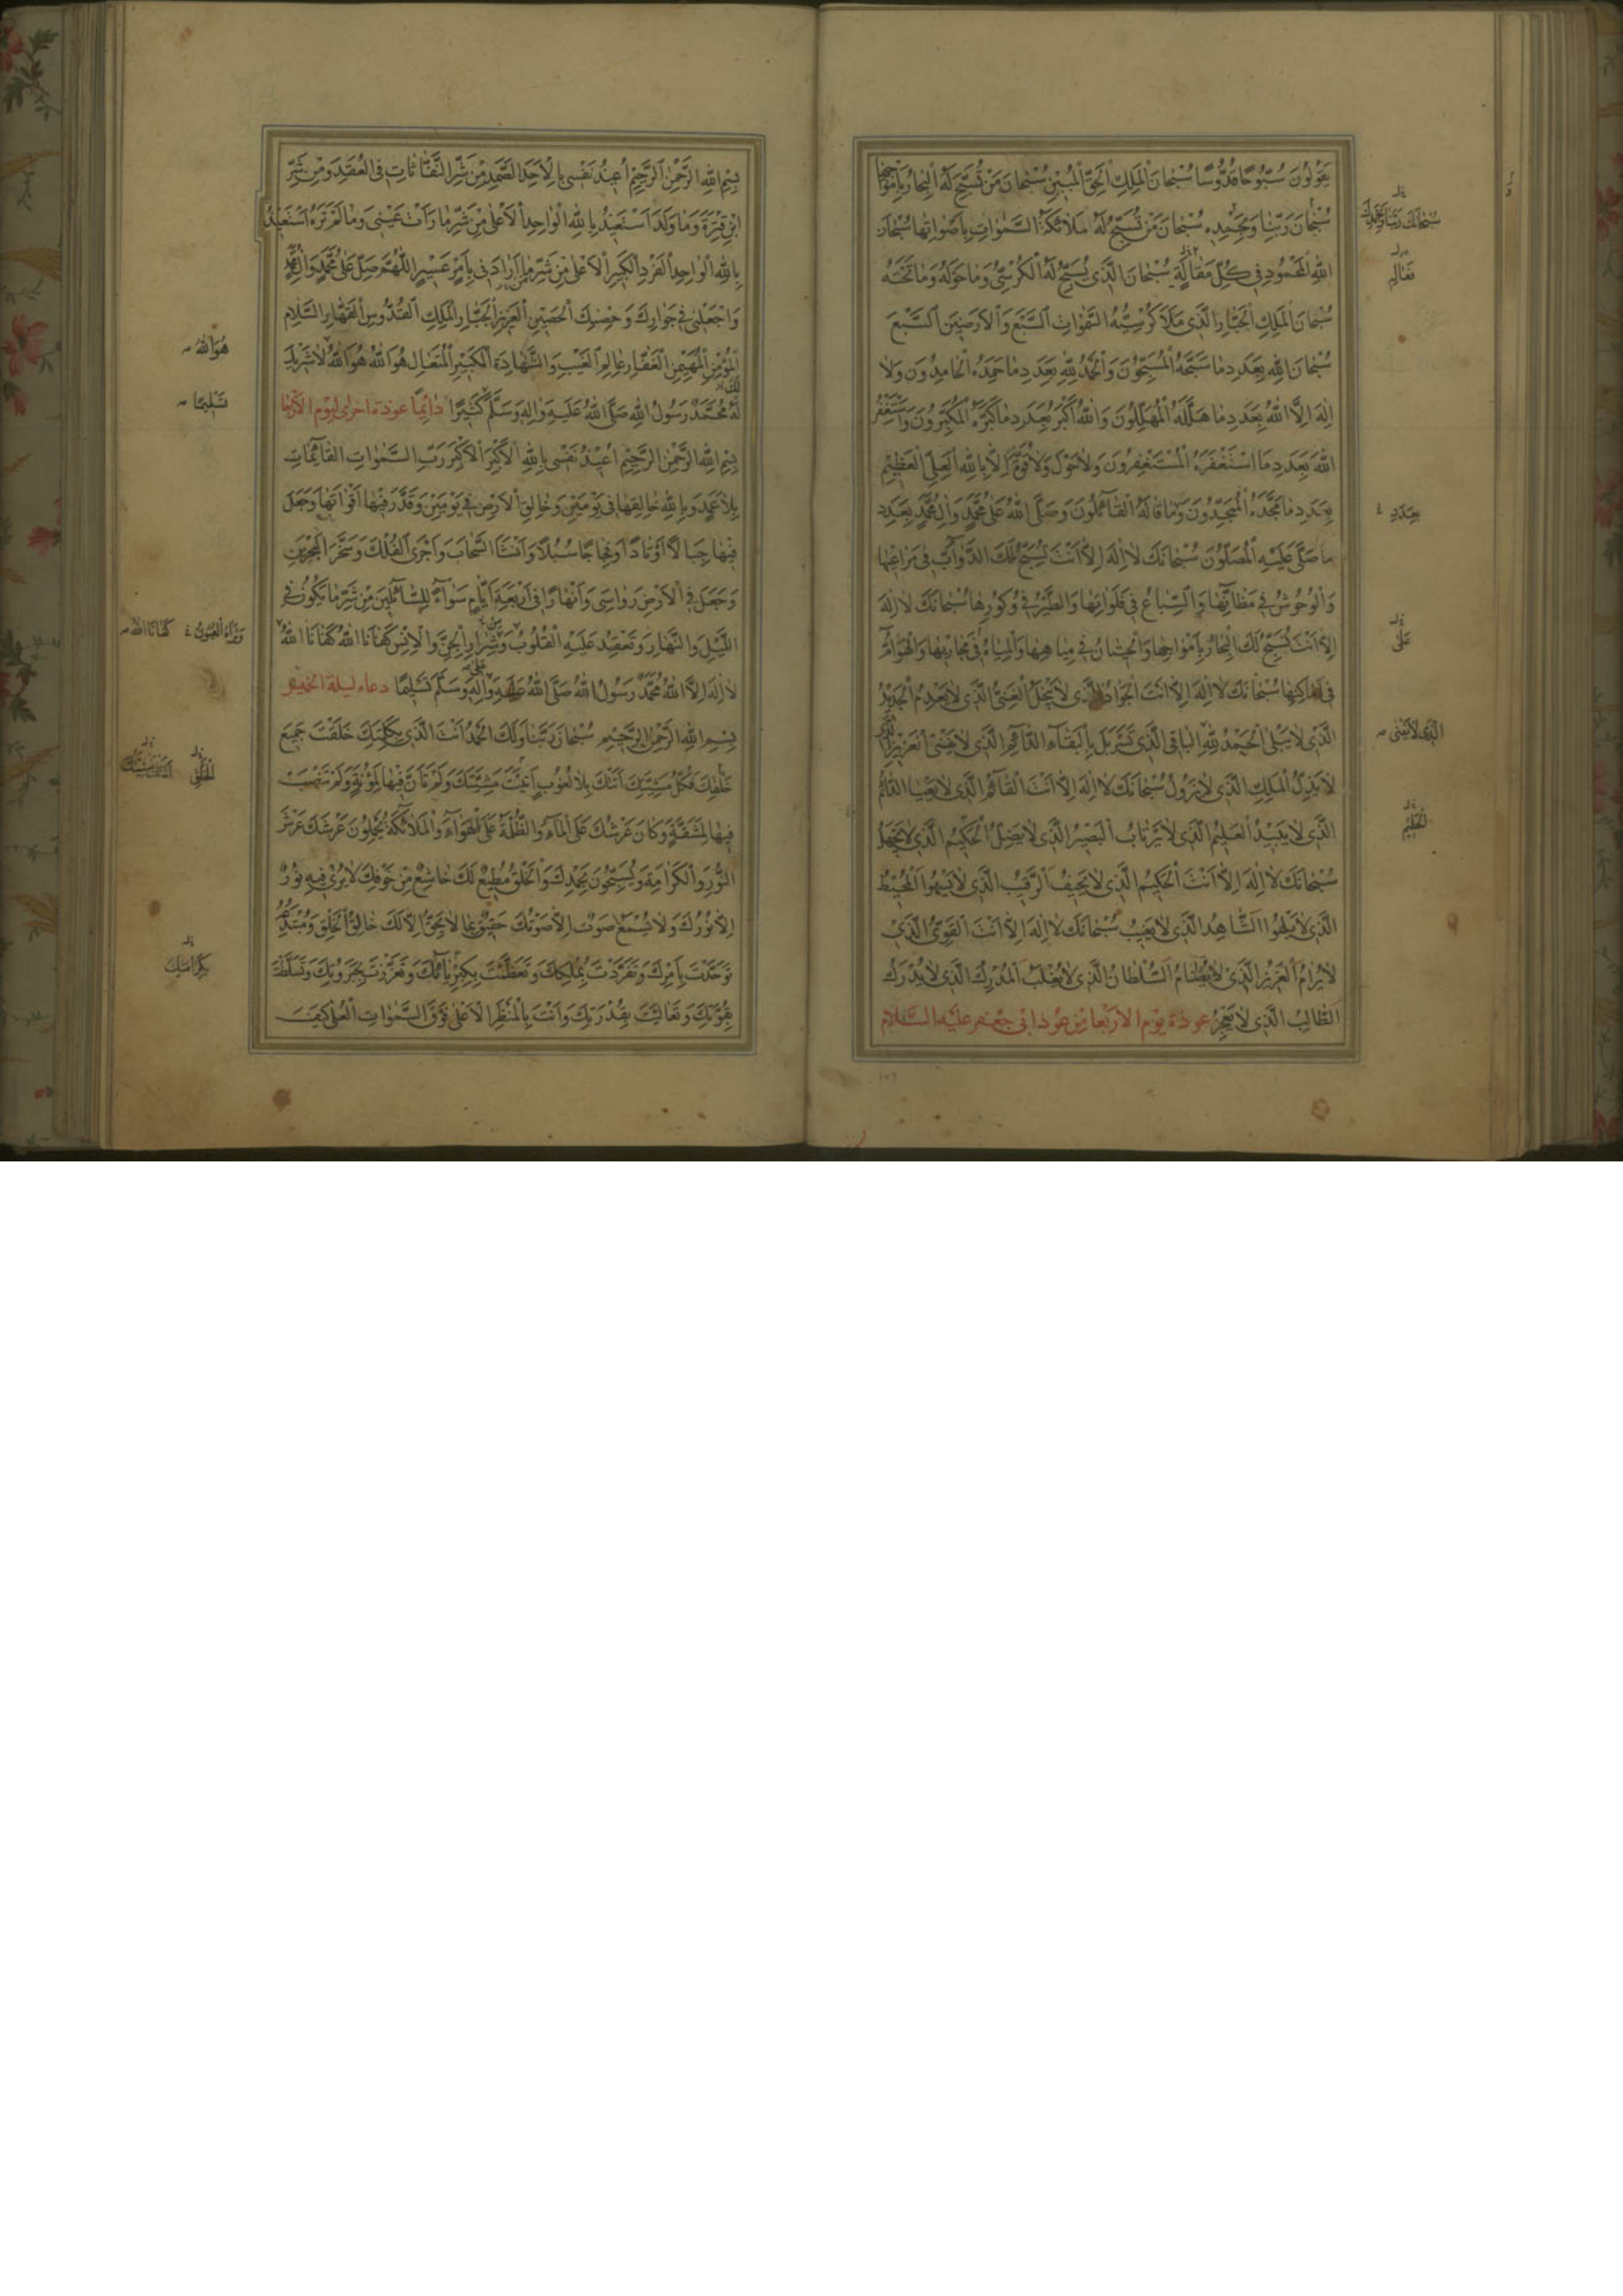 يَقُولُونَ سُبُّوحًا قُدُّوسًا سُبْحانَ الْمَلِكِ الْحَقِّ الْمُبِينِ سُبْحانَ مَنْ تُسَبِّحُ لَهُ الْبِحارُ بِأَمْواجِها
سُبْحانَ رَبِّنا وَبِحَمْدِهِ سُبْحانَ مَنْ تُسَبِّحُ لَهُ مَلائِكَةُ السَّمٰواتِ بِأَصْواتِها سُبْحانَ
اللهِ الْمَحْمُودِ في كُلِّ مَقالَةٍ سُبْحانَ الَّذي يُسَبِّحُ لَهُ الْكُرْسِيُّ وَما حَوْلَهُ وَما تَحْتَهُ
سُبْحانَ الْمَلِكِ الْجَبّارِ الَّذي مَلَأَ كُرْسِيُّهُ السَّمٰواتِ السَّبْعَ وَالْأَرَضينَ السَّبْعَ
سُبْحانَ اللهِ بِعَدَدِ ما سَبَّحَهُ الْمُسَبِّحُونَ وَالْحَمْدُ لِلّٰهِ بِعَدَدِ ما حَمِدَهُ الْحامِدُونَ وَلا
إِلهَ إِلَّا اللهُ بِعَدَدِ ما هَلَّلَهُ الْمُهَلِّلُونَ وَاللهُ أَكْبَرُ بِعَدَدِ ما كَبَّرَهُ الْمُكَبِّرُونَ وَأَسْتَغْفِرُ
اللهَ بِعَدَدِ مَا اسْتَغْفَرَهُ الْمُسْتَغْفِرُونَ وَلا حَوْلَ وَلا قُوَّةَ إِلّا بِاللهِ الْعَلِيِّ الْعَظيمِ
بِعَدَدِ ما مَجَّدَهُ الْمُمَجِّدُونَ وَما قالَهُ الْقائِلُونَ وَصَلَّى اللهُ عَلى مُحَمَّدٍ وَآلِ مُحَمَّدٍ بِعَدَدِ
ما صَلّى عَلَيْهِ الْمُصَلُّونَ سُبْحانَكَ لا إِلهَ إِلّا أَنْتَ تُسَبِّحُ لَكَ الدَّوابُّ في مَراعيها
وَالْوُحُوشُ في مَظانِّها وَالسِّباعُ في فَلَواتِها وَالطَّيْرُ في وُكُورِها سُبْحانَكَ لا إِلهَ
إِلّا أَنْتَ تُسَبِّحُ لَكَ الْبِحارُ بِأَمْواجِها وَالْحيتانُ في مِياهِها وَالْمِياهُ في مَجاريها وَالْهَوامُّ
في أَماكِنِها سُبْحانَكَ لا إِلهَ إِلّا أَنْتَ الْجَوادُ الَّذي لا يَبْخَلُ الْغَنِيُّ الَّذي لا يَعْدَمُ الْجَديدُ
الَّذي لا يَبْلى الْحَمْدُ لِلّٰهِ الْباقِي الَّذي تَسَرْبَلَ بِالْبَقاءِ الدّائِمِ الَّذي لا يَفْنى الْعَزيزِ الَّذي
لا يَذِلُّ الْمَلِكِ الَّذي لا يَزُولُ سُبْحانَكَ لا إِلهَ إِلّا أَنْتَ الْقائِمُ الَّذي لا يَعْيا الدّائِمُ
الَّذي لا يَبيدُ الْعَليمُ الَّذي لا يَرْتابُ الْبَصيرُ الَّذي لا يَضِلُّ الْحَكيمُ الَّذي لا يَجْهَلُ
سُبْحانَكَ لا إِلهَ إِلّا أَنْتَ الْحَكيمُ الَّذي لا يَحيفُ الرَّقيبُ الَّذي لا يَسْهُوا الْمُحيطُ
الَّذي لا يَلْهُوا الشّاهِدُ الَّذي لا يَغيبُ سُبْحانَكَ لا إِلهَ إِلّا أَنْتَ الْقَوِيُّ الَّذي
لا يُرامُ الْعَزيزُ الَّذي لا يُضامُ السُّلْطانُ الَّذي لا يُغْلَبُ الْمُدْرِكُ الَّذي لا يُدْرَكُ
الطّالِبُ الَّذي لا يَعْجِزُ عوذة يوم الاربعا من عوذ ابى جعفر عليه السلام
سُبْحانَكَ رَبَّنا وَبِحَمْدِكَ
بِعَدَدِ
عَلى
الَّذي لا يَفْنى
الْحَليمُ
بِسْمِ اللهِ الرَّحْمٰنِ الرَّحيمِ أُعيذُ نَفْسي بِالْأَحَدِ الصَّمَدِ مِنْ شَرِّ النَّفّاثاتِ فِي الْعُقَدِ وَمِنْ شَرِّ
ابْنِ قِتْرَةَ وَما وَلَدَ أَسْتَعيذُ بِاللهِ الْواحِدِ الْأَعْلى مِنْ شَرِّ ما رَأَتْ عَيْني وَما لَمْ تَرَهُ أَسْتَعيذُ
بِاللهِ الْواحِدِ الْفَرْدِ الْكَبيرِ الْأَعْلى مِنْ شَرِّ مَنْ أَرادَني بِأَمْرٍ عَسيرٍ اللّٰهُمَّ صَلِّ عَلى مُحَمَّدٍ وَآلِ مُحَمَّدٍ
وَاجْعَلْني في جِوارِكَ وَحِصْنِكَ الْحَصينِ الْعَزيزِ الْجَبّارِ الْمَلِكِ الْقُدُّوسِ الْقَهّارِ السَّلامِ
الْمُؤْمِنِ الْمُهَيْمِنِ الْغَفّارِ عالِمِ الْغَيْبِ وَالشَّهادَةِ الْكَبيرِ الْمُتَعالِ هُوَ اللهُ هُوَ اللهُ لا شَريكَ
لَهُ مُحَمَّدٌ رَسُولُ اللهِ صَلَّى اللهُ عَلَيْهِ وَآلِهِ وَسَلَّمَ كَثيرًا دائِمًا عوذة اخرى ليوم الاربعا
بِسْمِ اللهِ الرَّحْمٰنِ الرَّحيمِ أُعيذُ نَفْسي بِاللهِ الْأَكْبَرِ الْأَكْبَرِ رَبِّ السَّمٰواتِ الْقائِماتِ
بِلا عَمَدٍ وَبِاللهِ خالِقِها في يَوْمَيْنِ وَخالِقِ الْأَرْضِ في يَوْمَيْنِ وَقَدَّرَ فيها أَقْواتَها وَجَعَلَ
فيها جِبالًا أَوْتادًا وَفِجاجًا سُبُلًا وَأَنْشَأَ السَّحابَ وَأَجْرَى الْفُلْكَ وَسَخَّرَ الْبَحْرَيْنِ
وَجَعَلَ فِي الْأَرْضِ رَواسِيَ وَأَنْهارًا في أَرْبَعَةِ أَيّامٍ سَواءً لِلسّائِلينَ مِنْ شَرِّ ما يَكُونُ فِي
اللَّيْلِ وَالنَّهارِ وَتَعْقِدُ عَلَيْهِ الْقُلُوبُ وَشِرارِ الْجِنِّ وَالْإِنْسِ كَفانَا اللهُ كَفانَا اللهُ
لا إِلهَ إِلَّا اللهُ مُحَمَّدٌ رَسُولُ اللهِ صَلَّى اللهُ عَلَيْهِ وَآلِهِ وَسَلَّمَ تَسْليمًا دعاء ليلة الخميس
بِسْمِ اللهِ الرَّحْمٰنِ الرَّحيمِ سُبْحانَ رَبِّنا وَلَكَ الْحَمْدُ أَنْتَ الَّذي بِكَلِمَتِكَ خَلَقْتَ جَميعَ
خَلْقِكَ فَكُلُّ مَشِيَّتِكَ أَتَتْكَ بِلا لُغُوبٍ أَثْبَتَّ مَشِيَّتَكَ وَلَمْ تَأْنَ فيها لِمَؤُنَةٍ وَلَمْ تَنْصَبْ
فيها لِمَشَقَّةٍ وَكانَ عَرْشُكَ عَلَى الْماءِ وَالظُّلْمَةُ عَلَى الْهَواءِ وَالْمَلائِكَةُ يَحْمِلُونَ عَرْشَكَ عَرْشَ
النُّورِ وَالْكَرامَةِ وَيُسَبِّحُونَ بِحَمْدِكَ وَالْخَلْقُ مُطيعٌ لَكَ خاشِعٌ مِنْ خَوْفِكَ لا يُرى فيهِ نُورٌ
إِلّا نُورُكَ وَلا يُسْمَعُ صَوْتٌ إِلّا صَوْتُكَ حَقيقٌ بِما لا يَحِقُّ إِلّا لَكَ خالِقُ الْخَلْقِ وَمُبْتَدِعُهُ
تَوَحَّدْتَ بِأَمْرِكَ وَتَفَرَّدْتَ بِمُلْكِكَ وَتَعَظَّمْتَ بِكِبْرِيائِكَ وَتَعَزَّزْتَ بِجَبَرُوتِكَ وَتَسَلَّطْتَ
بِقُوَّتِكَ وَتَعالَيْتَ بِقُدْرَتِكَ وَأَنْتَ بِالْمَنْظَرِ الْأَعْلى فَوْقَ السَّمٰواتِ الْعُلى كَيْفَ
هُوَ اللهُ
تَسْليمًا
وَتَراهُ الْعُيُونُ كَفانَا اللهُ